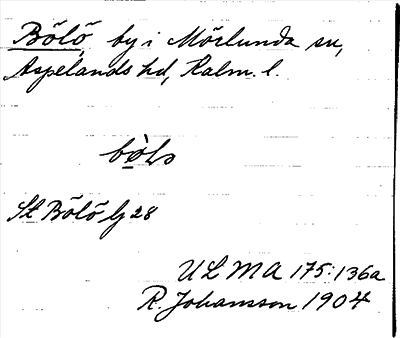 Bölö, by i Mörlunda sn,
Aspelands hd, Kalm. l.
St Bölö Lj 28
ULMA 175:136a
R. Johansson 1904